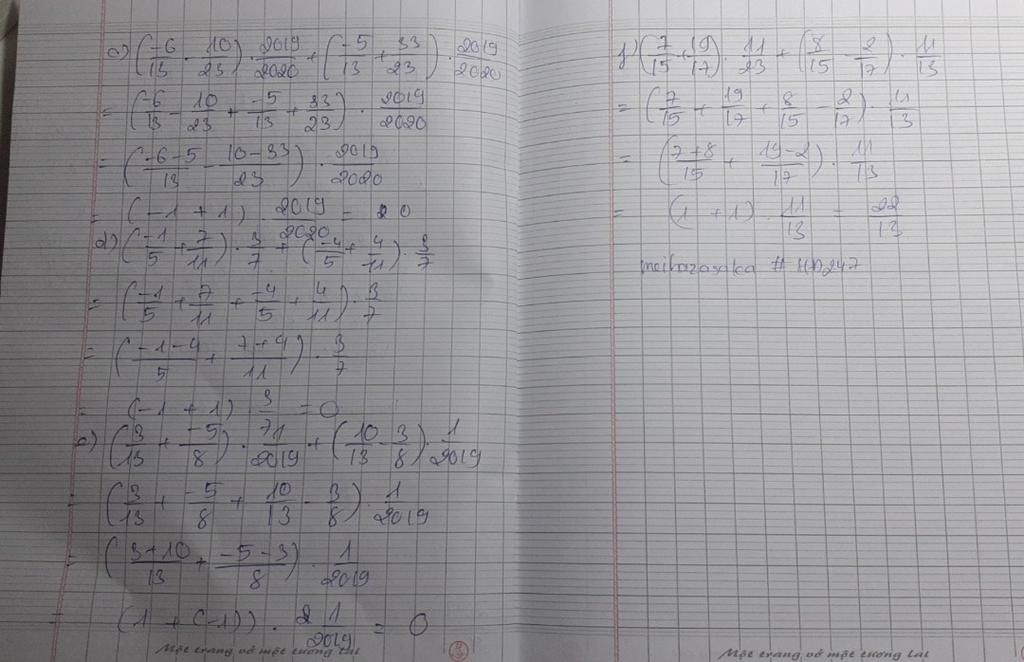 c) (-6/13 - 10/23) . 2019/2020 + (-5/13 + 33/23) . 2019/2020
= (-6/13 - 10/23 + -5/13 + 33/23) . 2019/2020
= (-6-5/13 - 10-33/23) . 2019/2020
= (-1 + 1) . 2019/2020 = 0
d) (-1/5 + 7/11) . 3/7 + (-4/5 + 4/11) . 3/7
= (-1/5 + 7/11 + -4/5 + 4/11) . 3/7
= (-1-4/5 + 7+4/11) . 3/7
= (-1 + 1) . 3/7 = 0
e) (3/13 + -5/8) . 1/2019 + (10/13 - 3/8) . 1/2019
= (3/13 + -5/8 + 10/13 - 3/8) . 1/2019
= (3+10/13 + -5-3/8) . 1/2019
= (1 + (-1)) . 1/2019 = 0
Một trang vở một tương lai
f) (7/15 + 19/17) . 11/23 + (8/15 - 2/17) . 11/13
= (7/15 + 19/17 + 8/15 - 2/17) . 11/13
= (7+8/15 + 19-2/17) . 11/13
= (1 + 1) . 11/13 = 22/13
# HD247
Một trang vở một tương lai